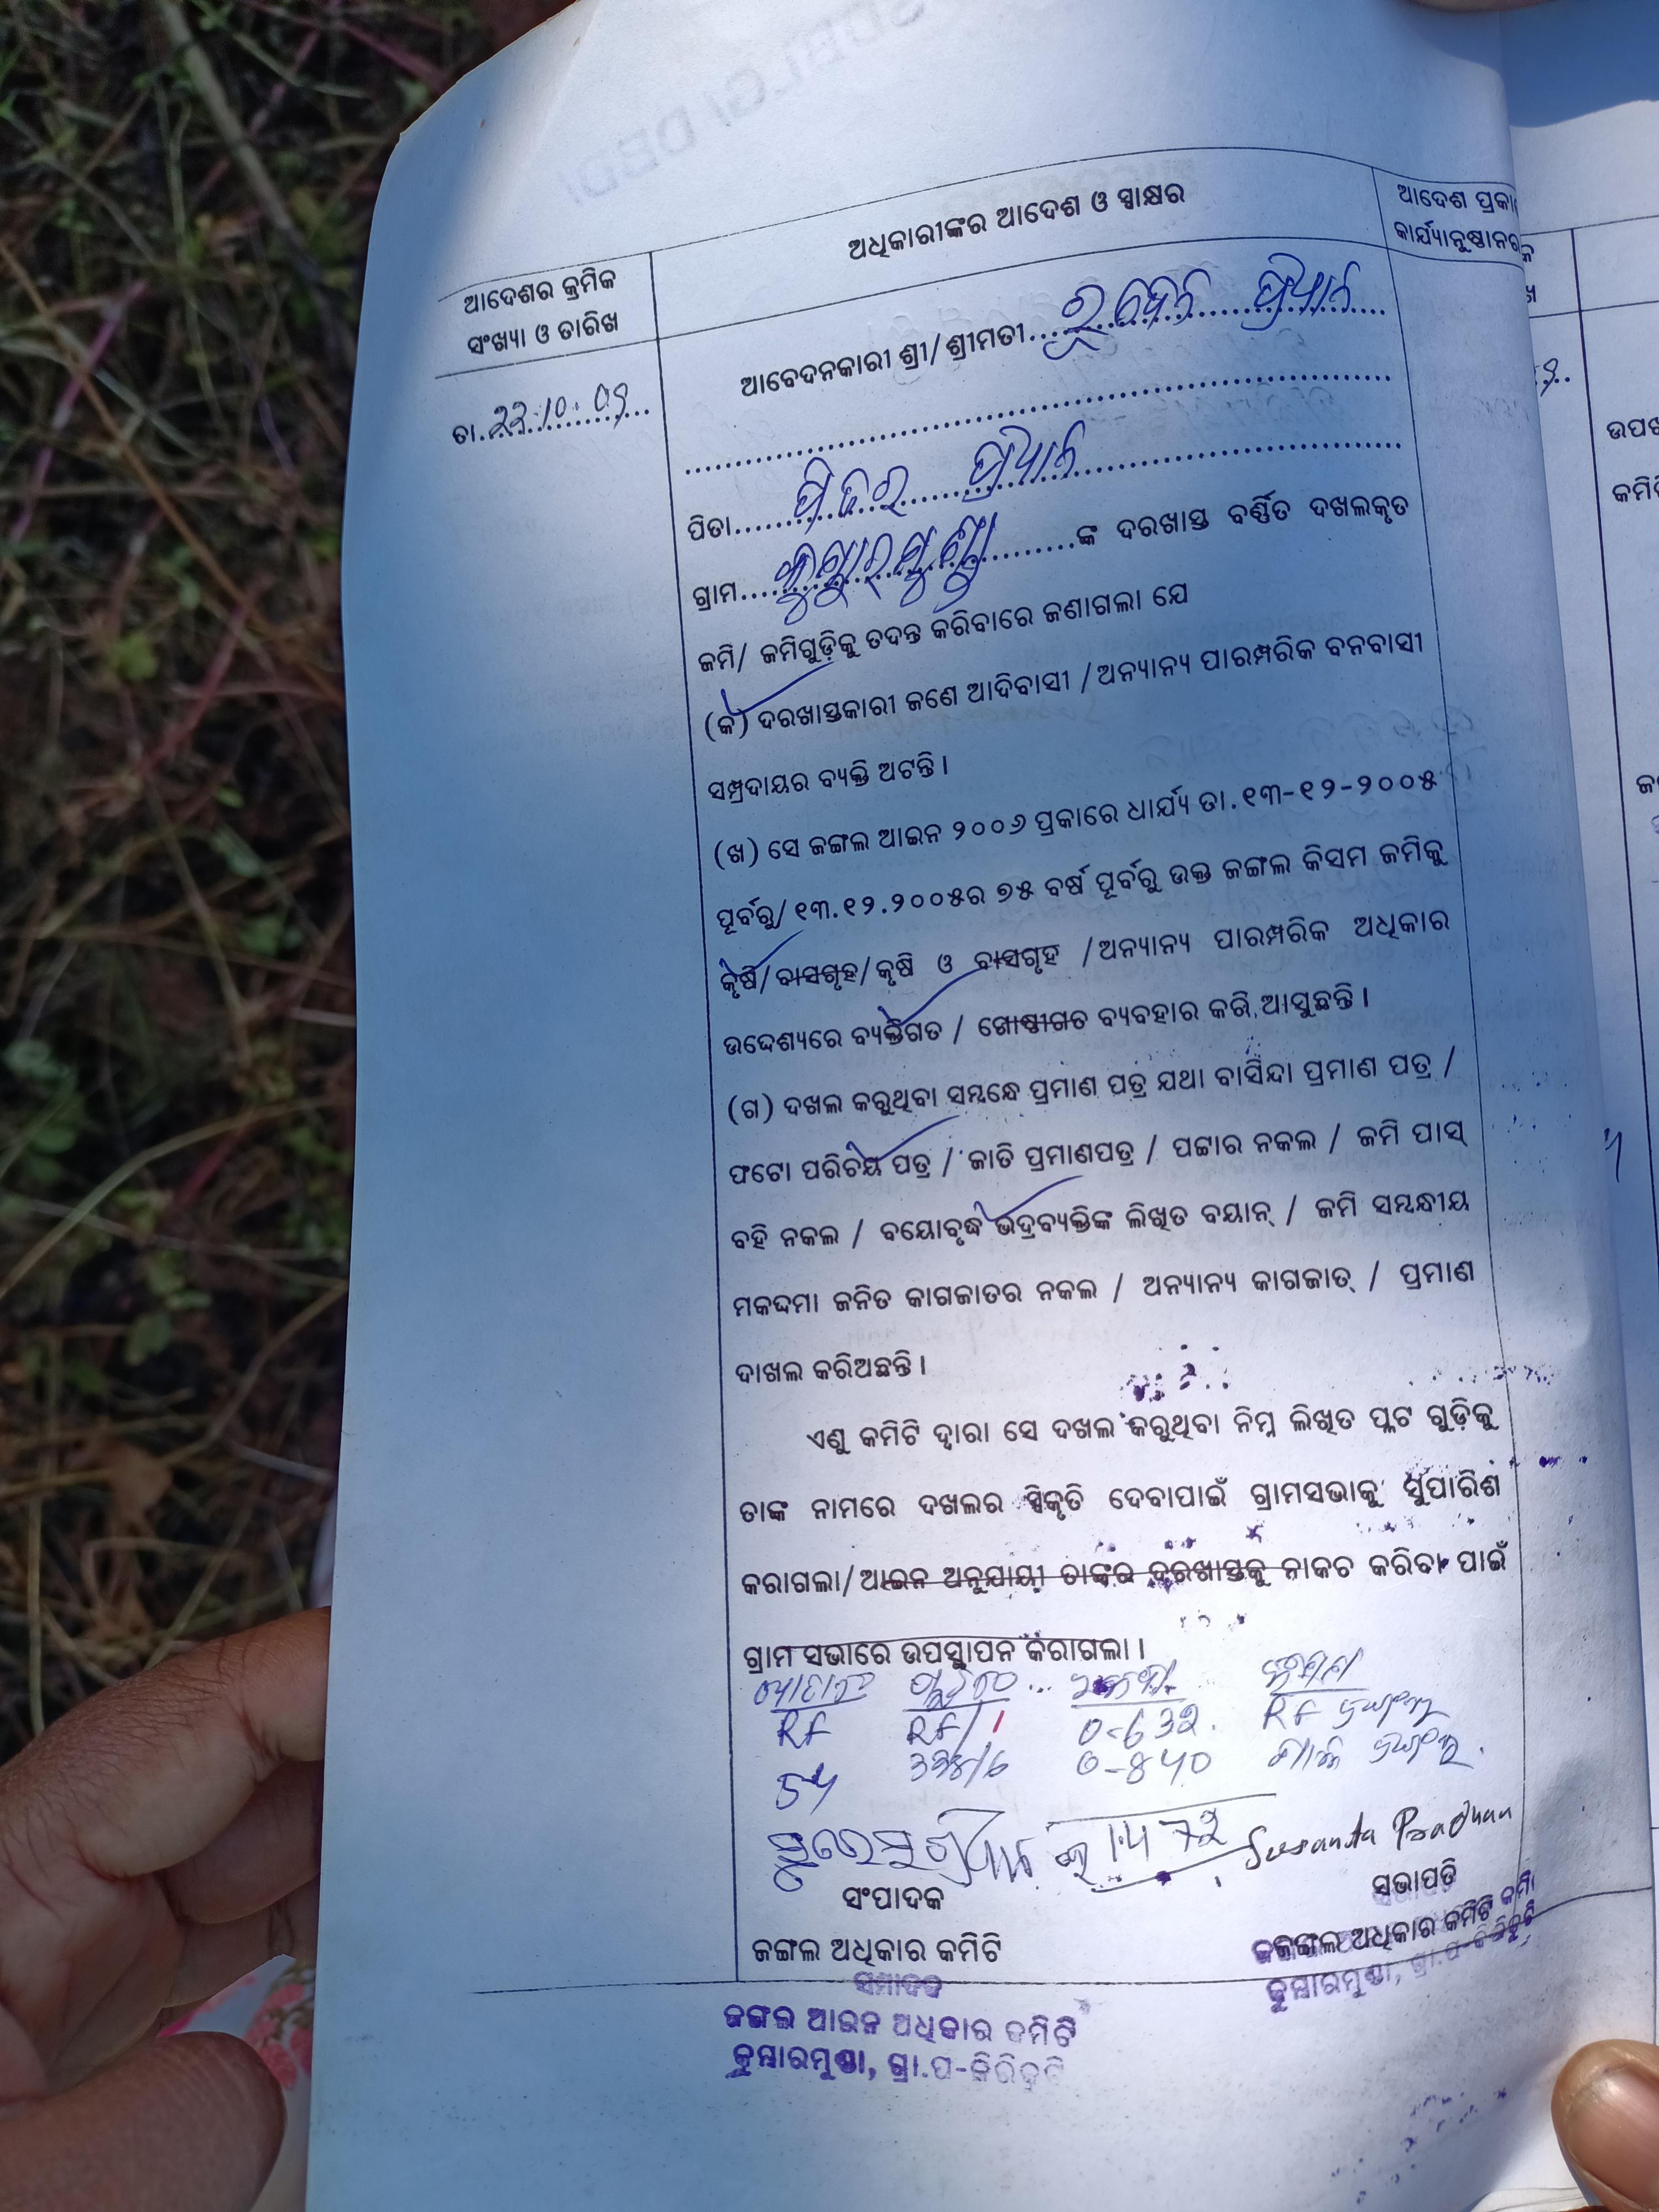 ଆଦେଶର କ୍ରମିକ
ସଂଖ୍ୟା ଓ ତାରିଖ
ଅଧିକାରୀଙ୍କର ଆଦେଶ ଓ ସ୍ୱାକ୍ଷର
ଆଦେଶ ପ୍ରକା
କାର୍ଯ୍ୟାନୁଷ୍ଠାନର
ତା. 22.10.09
ଆବେଦନକାରୀ ଶ୍ରୀ/ଶ୍ରୀମତୀ ପ୍ରଧାନ
ପିତା ପ୍ରଧାନ
ଗ୍ରାମ କୁମ୍ଭାରମୁଣ୍ଡା ଙ୍କ ଦରଖାସ୍ତ ବର୍ଣ୍ଣିତ ଦଖଲକୃତ
ଜମି/ ଜମିଗୁଡ଼ିକୁ ତଦନ୍ତ କରିବାରେ ଜଣାଗଲା ଯେ
(କ) ଦରଖାସ୍ତକାରୀ ଜଣେ ଆଦିବାସୀ /ଅନ୍ୟାନ୍ୟ ପାରମ୍ପରିକ ବନବାସୀ
ସମ୍ପ୍ରଦାୟର ବ୍ୟକ୍ତି ଅଟନ୍ତି।
(ଖ) ସେ ଜଙ୍ଗଲ ଆଇନ ୨୦୦୬ ପ୍ରକାରେ ଧାର୍ଯ୍ୟ ତା.୧୩-୧୨-୨୦୦୫
ପୂର୍ବରୁ/ ୧୩.୧୨.୨୦୦୫ର ୭୫ ବର୍ଷ ପୂର୍ବରୁ ଉକ୍ତ ଜଙ୍ଗଲ କିସମ ଜମିକୁ
କୃଷି/ବାସଗୃହ/କୃଷି ଓ ବାସଗୃହ /ଅନ୍ୟାନ୍ୟ ପାରମ୍ପରିକ ଅଧିକାର
ଉଦ୍ଦେଶ୍ୟରେ ବ୍ୟକ୍ତିଗତ / ଗୋଷ୍ଠୀଗତ ବ୍ୟବହାର କରି ଆସୁଛନ୍ତି।
(ଗ) ଦଖଲ କରୁଥିବା ସମ୍ବନ୍ଧେ ପ୍ରମାଣ ପତ୍ର ଯଥା ବାସିନ୍ଦା ପ୍ରମାଣ ପତ୍ର /
ଫଟୋ ପରିଚୟ ପତ୍ର / ଜାତି ପ୍ରମାଣପତ୍ର / ପଟ୍ଟାର ନକଲ / ଜମି ପାସ୍
ବହି ନକଲ / ବୟୋବୃଦ୍ଧ ଭଦ୍ରବ୍ୟକ୍ତିଙ୍କ ଲିଖିତ ବୟାନ୍ / ଜମି ସମ୍ବନ୍ଧୀୟ
ମକଦ୍ଦମା ଜନିତ କାଗଜାତର ନକଲ / ଅନ୍ୟାନ୍ୟ କାଗଜାତ୍ / ପ୍ରମାଣ
ଦାଖଲ କରିଅଛନ୍ତି।
ଏଣୁ କମିଟି ଦ୍ୱାରା ସେ ଦଖଲ କରୁଥିବା ନିମ୍ନ ଲିଖିତ ପ୍ଲଟ ଗୁଡ଼ିକୁ
ତାଙ୍କ ନାମରେ ଦଖଲର ସ୍ୱିକୃତି ଦେବାପାଇଁ ଗ୍ରାମସଭାକୁ ସୁପାରିଶ
କରାଗଲା/ଆଇନ ଅନୁଯାୟୀ ତାଙ୍କର ଦରଖାସ୍ତକୁ ନାକଚ କରିବା ପାଇଁ
ଗ୍ରାମ ସଭାରେ ଉପସ୍ଥାପନ କରାଗଲା।
RF RF/1 0-632 RF
Susanta Pradhan
ସଂପାଦକ
ସଭାପତି
ଜଙ୍ଗଲ ଅଧିକାର କମିଟି
ଜଙ୍ଗଲ ଅଧିକାର କମିଟି
କୁମ୍ଭାରମୁଣ୍ଡା, ଗ୍ରା.ପ-
ସମ୍ପାଦକ
ଜଙ୍ଗଲ ଆଇନ ଅଧିକାର କମିଟି
କୁମ୍ଭାରମୁଣ୍ଡା, ଗ୍ରା.ପ-କିରିକୁଟି